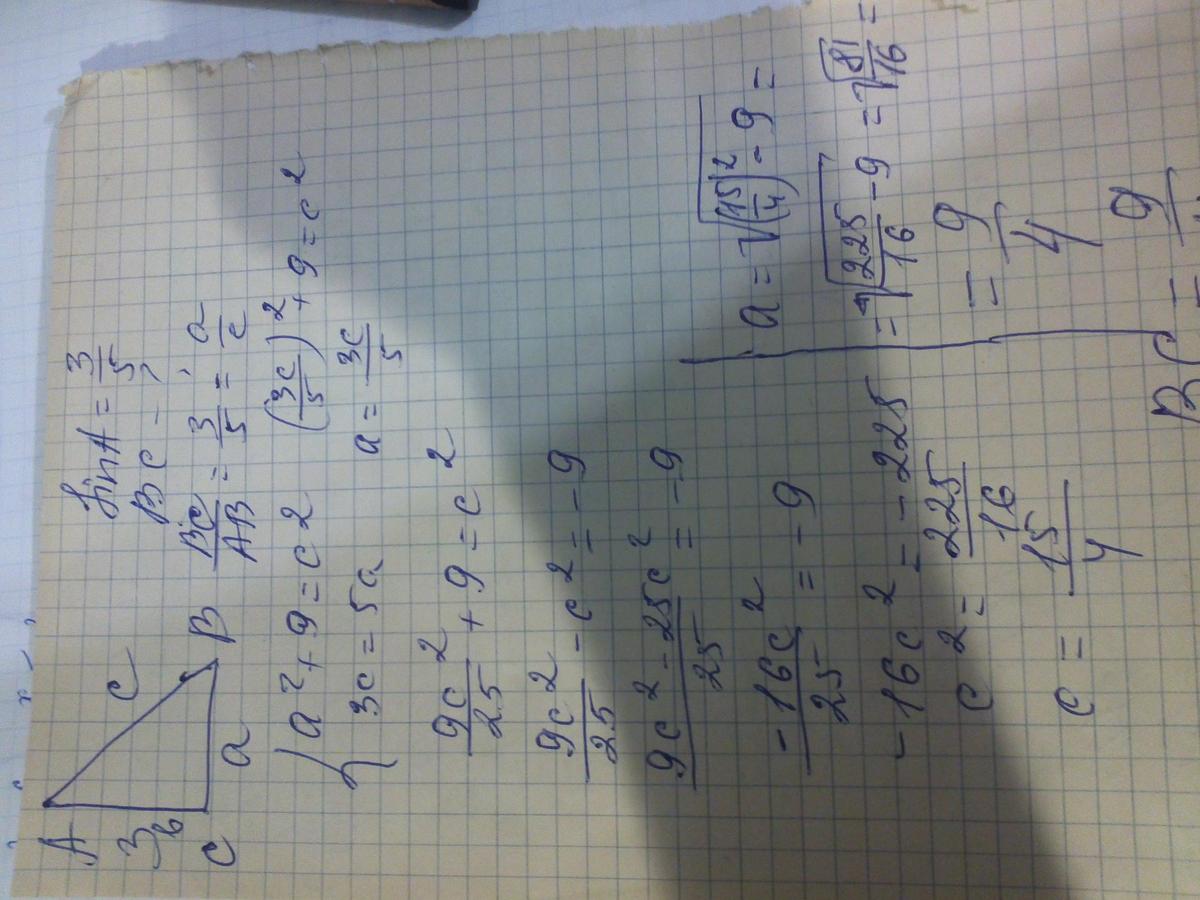 A
3
b
C
c
B
a
Sin A = 3/5
BC - ?
BC/AB = 3/5 = a/c
{ a² + 9 = c²
3c = 5a
(3c/5)² + 9 = c²
a = 3c/5
9c²/25 + 9 = c²
9c²/25 - c² = -9
9c² - 25c²/25 = -9
-16c²/25 = -9
-16c² = -225
c² = 225/16
c = 15/4
a = √(15/4)² - 9 =
= √225/16 - 9 = √81/16 =
= 9/4
BC = 9/